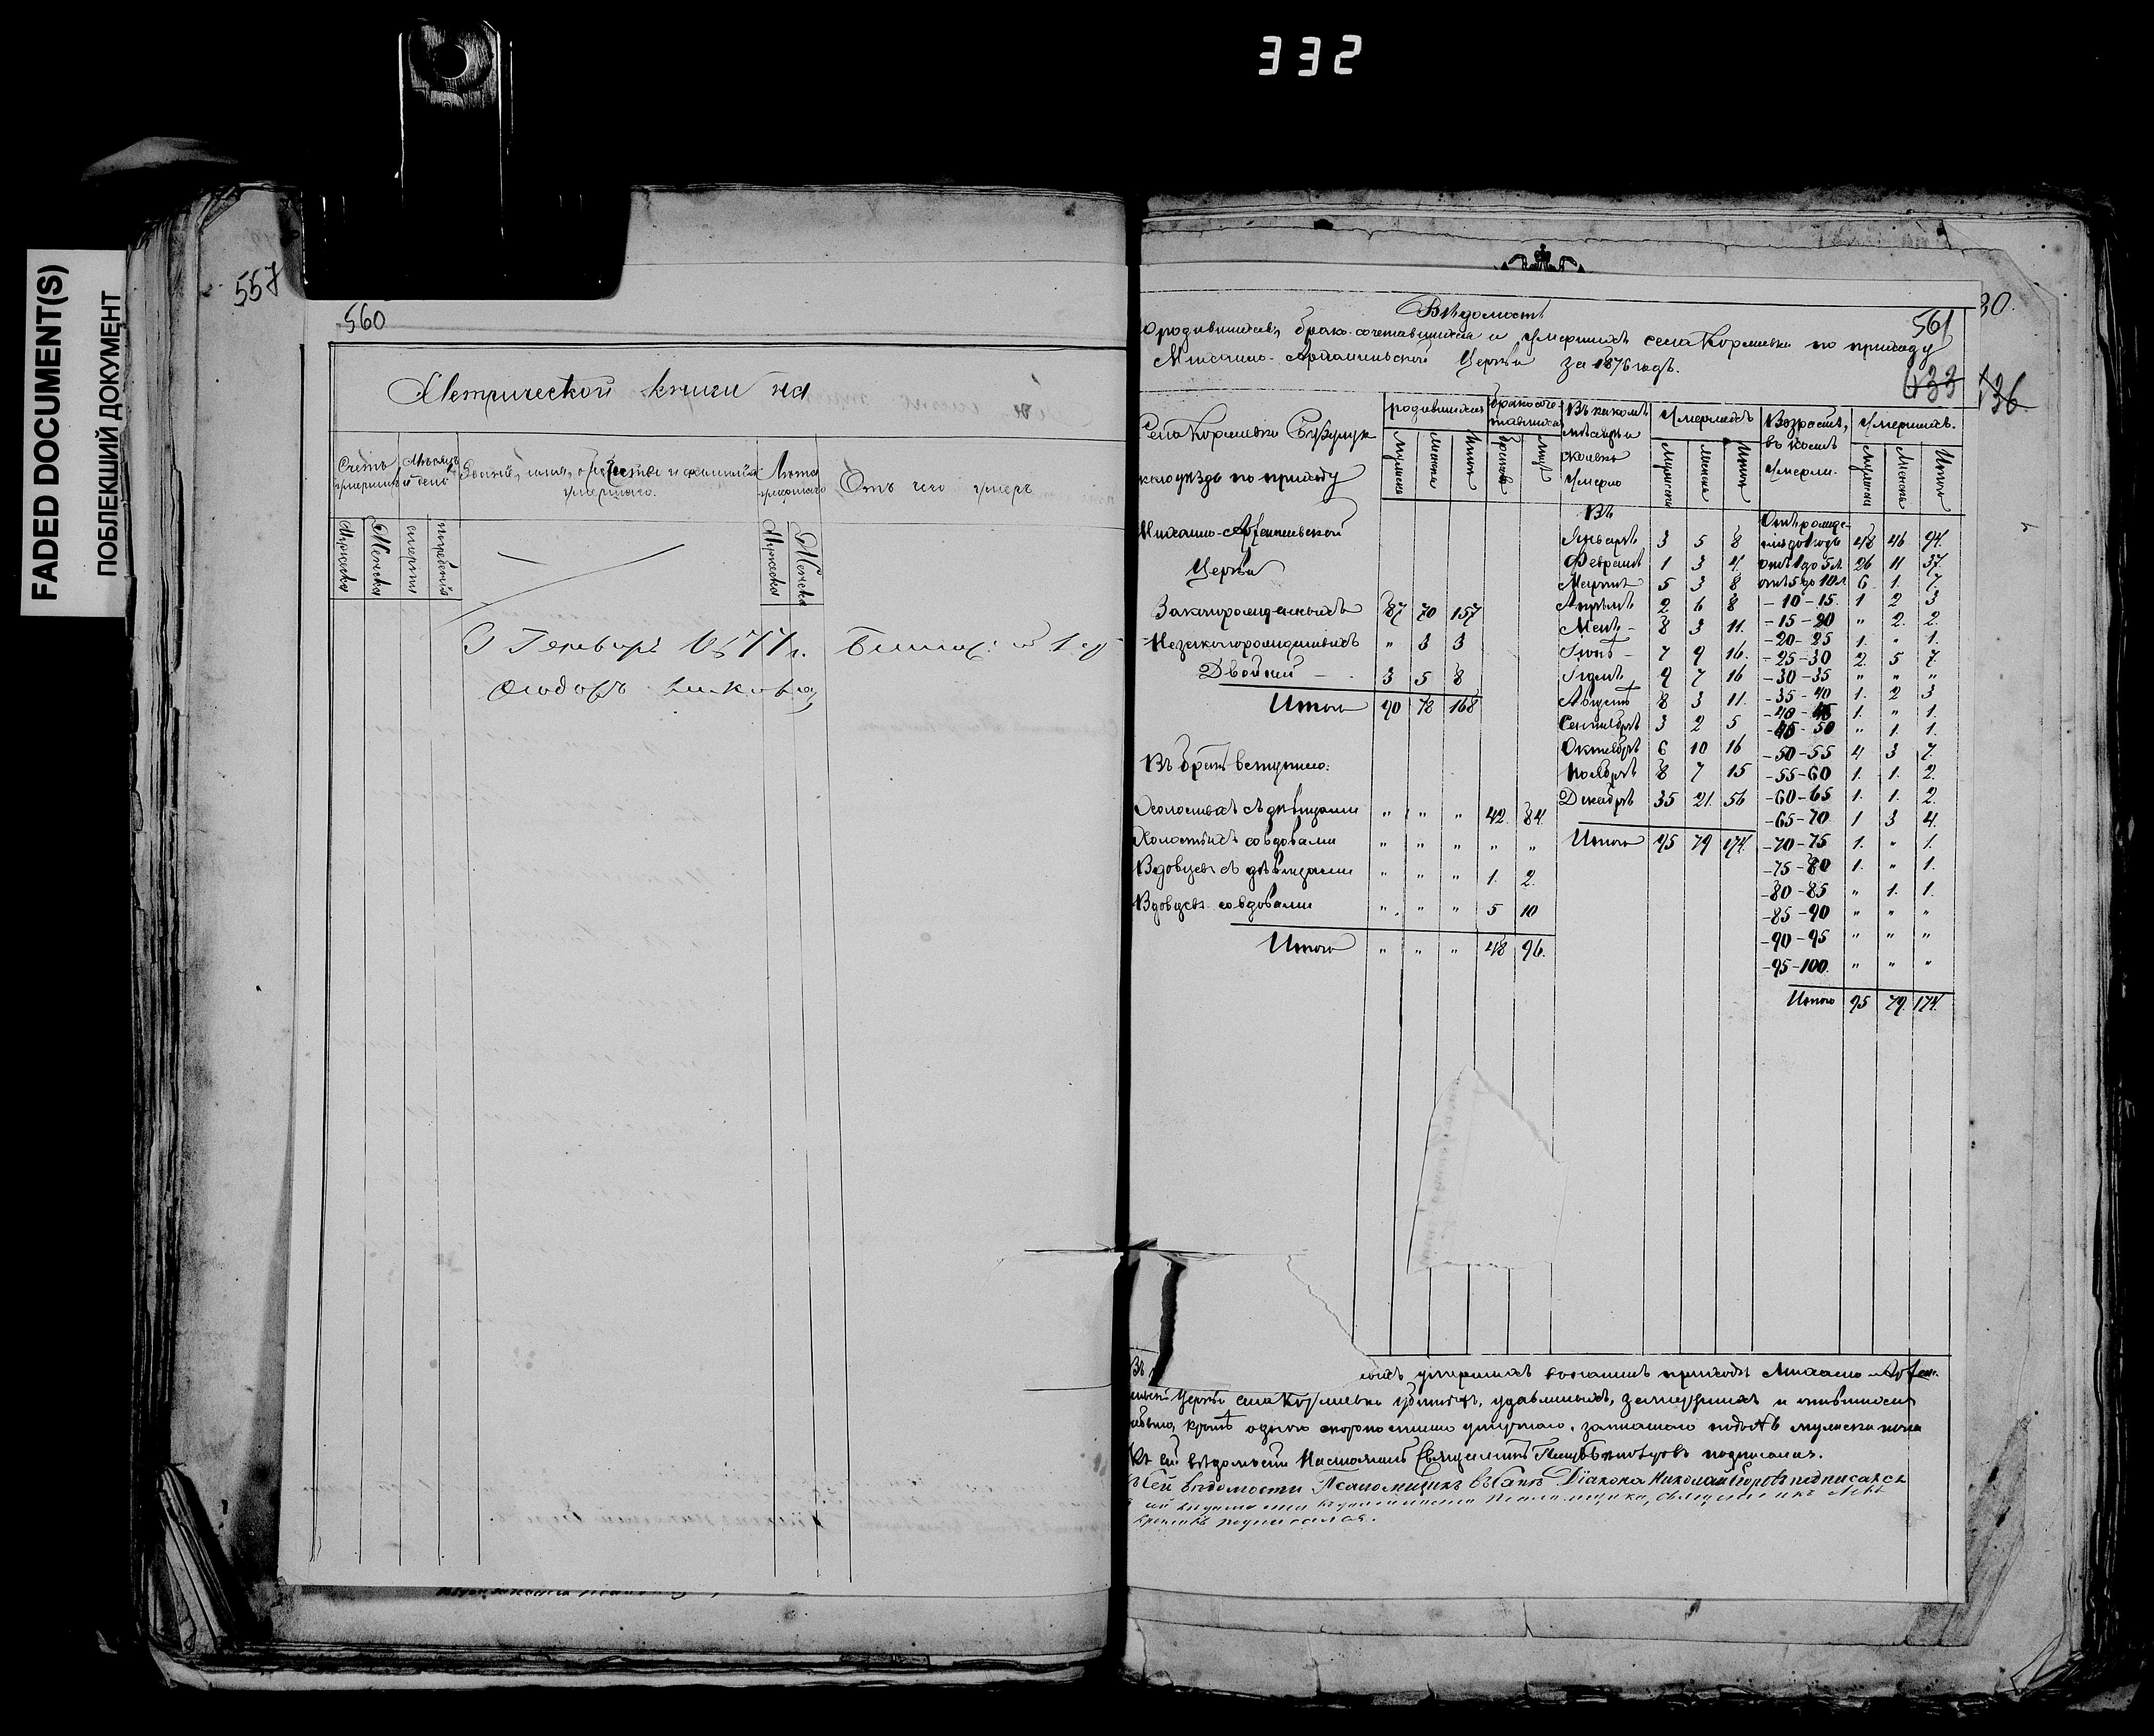 332
FADED DOCUMENT(S)
ПОБЛЕКШИЙ ДОКУМЕНТ
557
560
Метрической книги на
Счетъ умершихъ
Мѣсяцъ и день
Званіе, имя, отчество и фамилія умершаго.
Лѣта умершаго
Отъ чего умеръ
Мужеска
Женска
смерти
погребенія
Мужеска
Женска
Генваря 1877 г.
30.
Вѣдомость
561
о родившихся, брако-сочетавшихся и умершихъ села Кормѣевки по приходу
Михаило-Архангельской Церкви за 1876 годъ.
433
436
Села Кормѣевки Бузулук-
скаго уѣзда по приходу
Михаило-Архангельской
Церкви
родившихся
бракосоче-тавшихся
Въ какомъ мѣсяцѣ и сколько умерло
Умершихъ
Возрастъ, въ коемъ умерли.
Умершихъ.
Мужеска
Женска
Итого
браковъ
лицъ
Мужеска
Женска
Итого
Мужеска
Женска
Итого
Законорожденныхъ 87 70 157
Незаконорожденныхъ " 3 3
Двойней – 3 5 8
Итого 90 78 168
Въ бракъ вступило:
Холостыхъ съ дѣвицами " " " 42. 84.
Холостыхъ со вдовами " " " " "
Вдовцевъ съ дѣвицами " " " 1. 2.
Вдовцевъ со вдовами " " " 5 10
Итого " " " 48 96.
Въ
Январѣ 3 5 8
Февралѣ 1 3 4.
Мартѣ 5 3 8
Апрѣлѣ 2 6 8
Маѣ – 8 3 11.
Іюнѣ – 7 9 16.
Іюлѣ 9 7 16
Августѣ 8 3 11.
Сентябрѣ 3 2 5
Октябрѣ 6 10 16
Ноябрѣ 8 7 15
Декабрѣ 35 21. 56
Итого 95 79 174.
Отъ рожде-
нія до 1 года 48 46 94.
отъ 1 до 5 л. 26 11 37.
отъ 5 до 10 л. 6. 1. 7.
–10–15. 1 2 3
–15–20 " 2. 2.
–20–25 1. " 1.
–25–30 2. 5 7.
–30–35 " " "
–35–40 1. 2 3
–40–45 1. " 1.
–45–50 " 1. 1.
–50–55 4 3 7.
–55–60 1. 1. 2.
–60–65 1. 1. 2.
–65–70. 1 3 4.
–70–75 1. " 1.
–75–80 1. " 1.
–80–85 " 1. 1.
–85–90 " " "
–90–95 " " "
–95–100. " " "
Итого 95 79. 174.
Въ умершихъ въ нашемъ приходѣ Михаило-Архан-
Церкви села Кормѣевки убитыхъ, удавленныхъ, замерзшихъ и
кромѣ одного скоропостижно умершаго, записаго подъ № мужеска пола
Къ сей вѣдомости Настоятель Священникъ подписался.
Къ сей вѣдомости Псаломщикъ въ санѣ Діакона Николай подписался
сей вѣдомости псаломщика, священникъ
подписался.